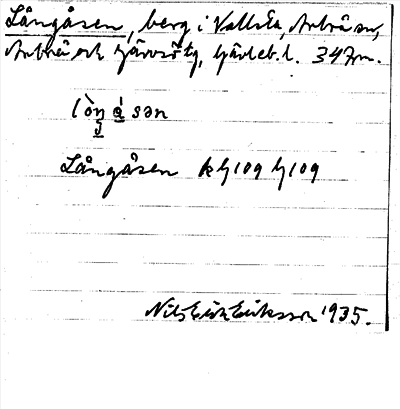 Långåsen, berg i Vallsta, Arbrå sn,
Arbrå och Järvsö tg, Gävleb. l. 347 m.
Långåsen kb 109 b 109
Nils Erik Eriksson 1935.